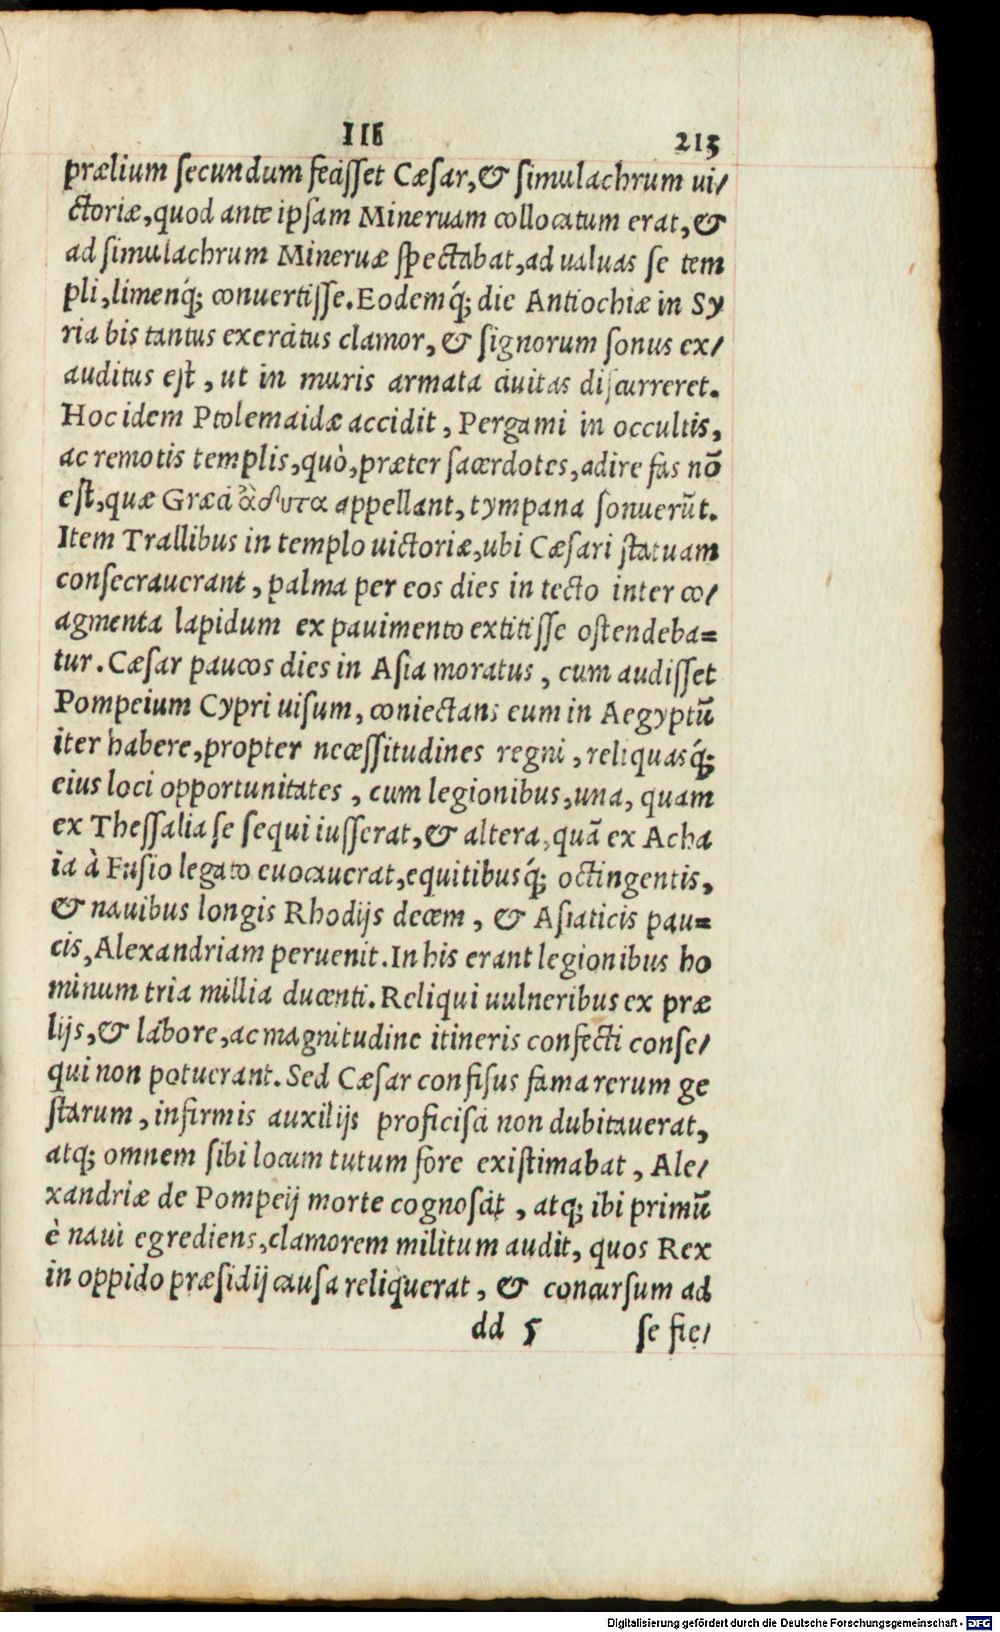 III 213
prælium secundum fecisset Cæsar, & simulachrum ui/
ctoriæ, quod ante ipsam Mineruam collocatum erat, &
ad simulachrum Mineruæ spectabat, ad ualuas se tem
pli, limenq́; conuertisse. Eodemq́; die Antiochiæ in Sy
ria bis tantus exercitus clamor, & signorum sonus ex/
auditus est, ut in muris armata ciuitas discurreret.
Hoc idem Ptolemaidæ accidit, Pergami in occultis,
ac remotis templis, quò, præter sacerdotes, adire fas nō
est, quæ Græci ἄδυτα appellant, tympana sonuerūt.
Item Trallibus in templo uictoriæ, ubi Cæsari statuam
consecrauerant, palma per eos dies in tecto inter co/
agmenta lapidum ex pauimento extitisse ostendeba=
tur. Cæsar paucos dies in Asia moratus, cum audisset
Pompeium Cypri uisum, coniectans eum in Aegyptū
iter habere, propter necessitudines regni, reliquasq́;
eius loci opportunitates, cum legionibus, una, quam
ex Thessalia se sequi iusserat, & altera, quā ex Acha
ia à Fusio legato euocauerat, equitibusq́; octingentis,
& nauibus longis Rhodijs decem, & Asiaticis pau=
cis, Alexandriam peruenit. In his erant legionibus ho
minum tria millia ducenti. Reliqui uulneribus ex præ
lijs, & labore, ac magnitudine itineris confecti conse/
qui non potuerant. Sed Cæsar confisus fama rerum ge
starum, infirmis auxilijs proficisci non dubitauerat,
atq; omnem sibi locum tutum fore existimabat, Ale/
xandriæ de Pompeij morte cognoscit, atq; ibi primū
è naui egrediens, clamorem militum audit, quos Rex
in oppido præsidij causa reliquerat, & concursum ad
dd 5 se fie/
Digitalisierung gefördert durch die Deutsche Forschungsgemeinschaft - DFG